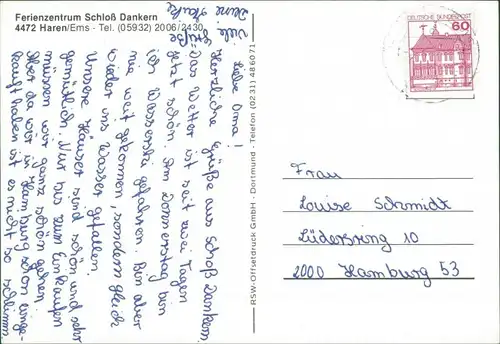 Ferienzentrum Schloß Dankern
4472 Haren/Ems - Tel. (05932) 2006/2430
Liebe Oma!
Herzliche Grüße aus Schloß Dankern.
Das Wetter ist seit zwei Tagen
jetzt schön. Am Donnerstag bin
ich Wasserski gefahren. Bin aber
nie weit gekommen, sondern gleich
wieder ins Wasser gefallen.
Unsere Häuser sind schön und sehr
gemütlich. Nur bis zum Einkaufen
müssen wir ganz schön gehen.
Aber da wir in Hamburg schon einge-
kauft haben ist es nicht so schlimm.
Viele Grüße
Deine
RSW-Offsetdruck GmbH - Dortmund - Telefon (0231) 486071
DEUTSCHE BUNDESPOST
60
Frau
Louise Schmidt
Lüdersring 10
2000 Hamburg 53